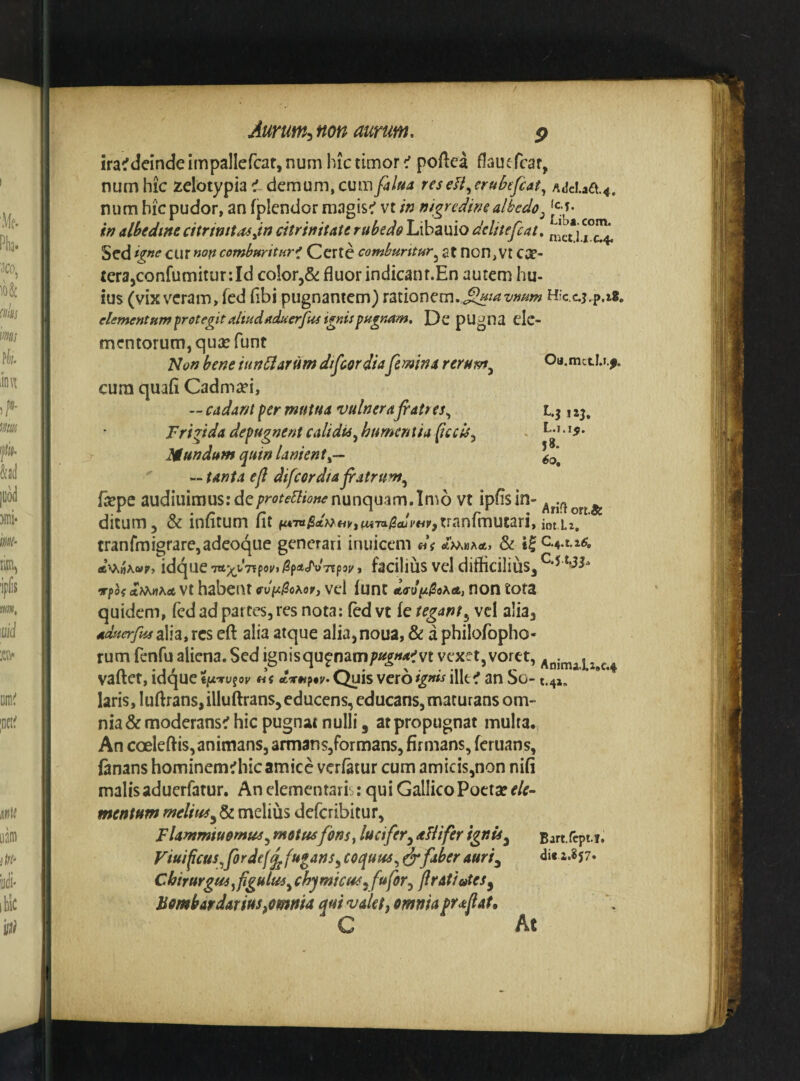 Aurum, non aurum. 9
ira? deinde impallefcat, num hîc timor? poſtea flaueſcat,
num hîc zelotypia? demum, cum falua res eſt, erubeſcat,
num hîc pudor, an ſplendor magis? vt in nigredine albedo,
in albedine citrinitas, in citrinitate rubedo Libauio deliteſcat.
Sed igne cur non comburitur? Certè comburitur, at non, vt cæ-
tera, conſumitur: Id color, & fluor indicant. En autem hu-
ius (vix veram, ſed ſibi pugnantem) rationem. Quia vnum
elementum protegit aliud aduerſus ignis pugnam. De pugna ele-
mentorum, quæ ſunt
Non bene iunctarũm diſcordia ſemina rerum,
cum quaſi Cadmæi,
-- cadant per mutua vulnera fratres,
Frigida depugnent calidis, humentia ſiccis,
Mundum quin lanient, --
-- tanta eſt diſcordia fratrum,
ſæpe audiuimus: de protectione nunquam. Imò vt ipſis in-
ditum, & inſitum ſit μεταβάλλειν, μεταβαίνειν, tranſmutari,
tranſmigrare, adeoque generari inuicem εἰς ἄλληλα, & ἐξ
ἀλλήλων, idque ταχύτερον, βραδύτερον, faciliùs vel difficiliùs,
πρὸς ἄλληλα vt habent σύμβολον, vel ſunt ἀσύμβολα, non tota
quidem, ſed ad partes, res nota: ſed vt ſe tegant, vel alia,
aduerſus alia, res eſt alia atque alia, noua, & à philoſopho-
rum ſenſu aliena. Sed ignis quęnam pugna? vt vexet, voret,
vaſtet, idque ἔμπυρον εἰς ἄπειρον. Quis verò ignis ille? an So-
laris, luſtrans, illuſtrans, educens, educans, maturans om-
nia & moderans? hic pugnat nulli, at propugnat multa.
An cœleſtis, animans, armans, formans, firmans, ſeruans,
ſanans hominem? hic amicè verſatur cum amicis, non niſi
malis aduerſatur. An elementaris: qui Gallico Poetæ ele-
mentum melius, & meliùs deſcribitur,
Flammiuomus, motus fons, lucifer, aſtifer ignis,
Viuificus, ſordeſq, fugans, coquus, & faber auri,
Chirurgus, figulus, chymicus, fuſor, ſtratiotes,
Bombardarius, omnia qui valet, omnia præſtat.
C At
Adcl.act.4.
ſc.5.
Liba.com.
met.l.1.c.4.
Hic.c.3.p.28.
Ou.met.l.1.9.
L.3 123.
L.1.19.
58.
60.
Ariſt ort.&
int.l.2.
C.4.t.26.
C.5.t.33.
Anima.l.2.c.4
t.42.
Bart.ſept.1.
die 2.857.